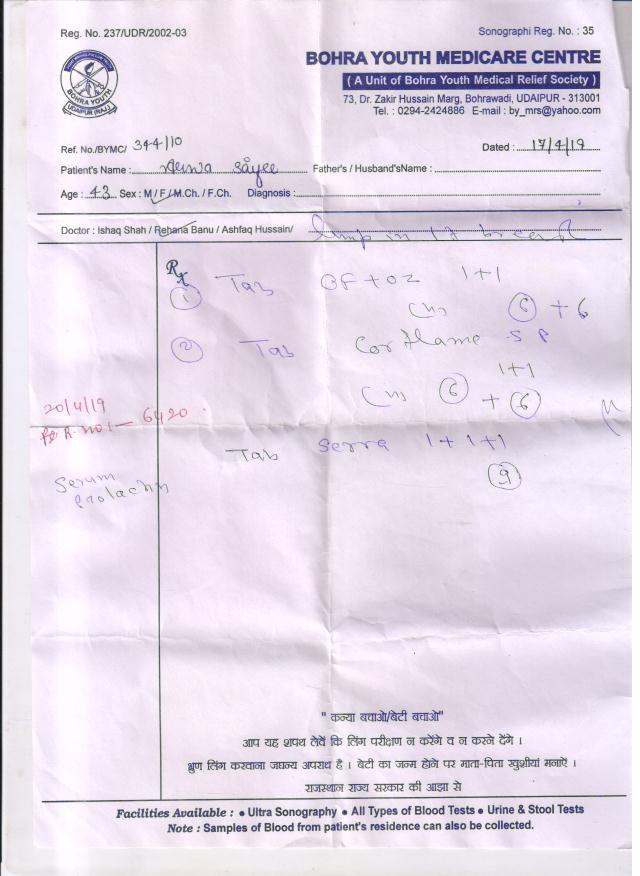 Reg. No. 237/UDR/2002-03
Sonographi Reg. No. : 35
BOHRA YOUTH
UDAIPUR (RAJ.)
BOHRA YOUTH MEDICARE CENTRE
( A Unit of Bohra Youth Medical Relief Society )
73, Dr. Zakir Hussain Marg, Bohrawadi, UDAIPUR - 313001
Tel. : 0294-2424886 E-mail : by_mrs@yahoo.com
Ref. No./BYMC/ 344/10
Dated : 17/4/19
Patient's Name : Father's / Husband'sName :
Age : 43 Sex : M / F / M.Ch. / F.Ch. Diagnosis :
Doctor : Ishaq Shah / Rehana Banu / Ashfaq Hussain/ lump in breast
Rx
1 Tab OF + OZ 1+1
6 + 6
2 Tab Corflame - SP
1+1
6 + 6
20/4/19
R. no. - 6420
Tab Serra 1+1+1
9
Serum
Prolactin
" कन्या बचाओ/बेटी बचाओ"
आप यह शपथ लेवें कि लिंग परीक्षण न करेंगे व न करने देंगे ।
भ्रुण लिंग करवाना जघन्य अपराध है । बेटी का जन्म होने पर माता-पिता खुशीयां मनाऐं ।
राजस्थान राज्य सरकार की आज्ञा से
Facilities Available : ● Ultra Sonography ● All Types of Blood Tests ● Urine & Stool Tests
Note : Samples of Blood from patient's residence can also be collected.